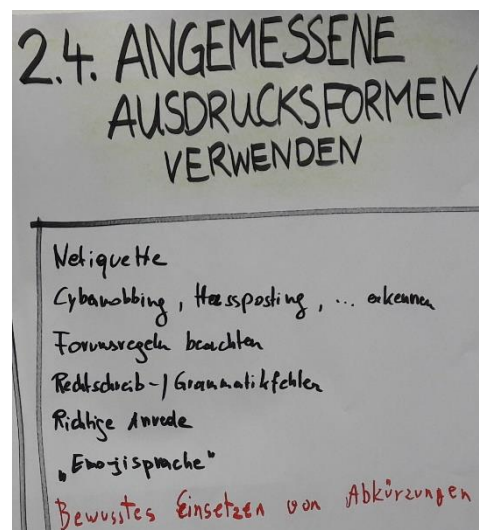 2.4. ANGEMESSENE
AUSDRUCKSFORMEN
VERWENDEN
Netiquette
Cybermobbing, Hassposting, ... erkennen
Forumsregeln beachten
Rechtschreib-/Grammatikfehler
Richtige Anrede
„Emojisprache“
Bewusstes Einsetzen von Abkürzungen